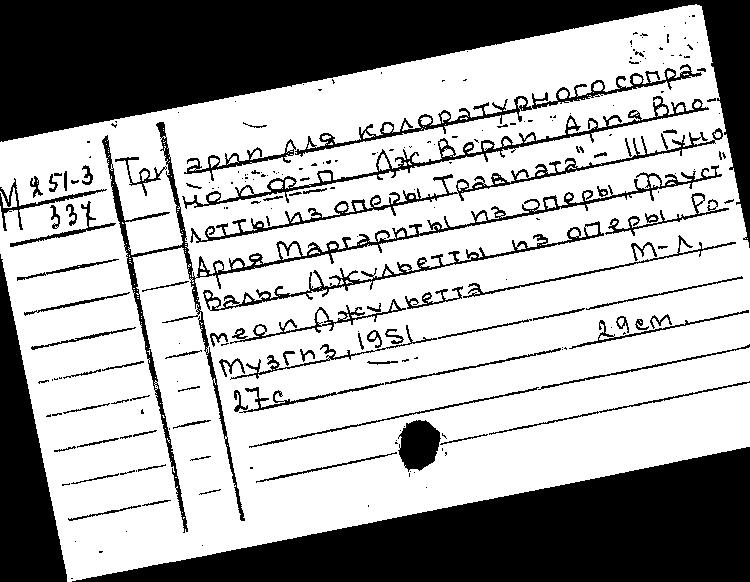 М 251-3
337
Три арии для колоратурного сопра-
но и ф-п. Дж. Верди. Ария Вио-
летты из оперы „Травиата". - Ш. Гуно
Ария Маргариты из оперы „Фауст"
Вальс Джульетты из оперы „Ро-
мео и Джульетта М-Л,
Музгиз, 1951.
27 с. 29 см.